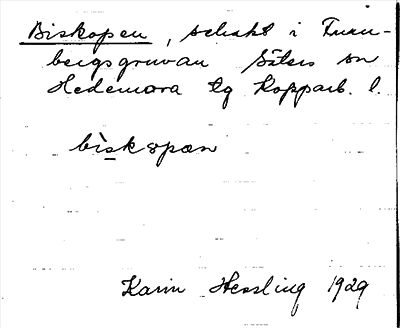 Biskopen, schakt i Tunn-
bergsgruvan Säters sn
Hedemora tg Kopparb. l.
bìskopæn
Karin Hessling 1929